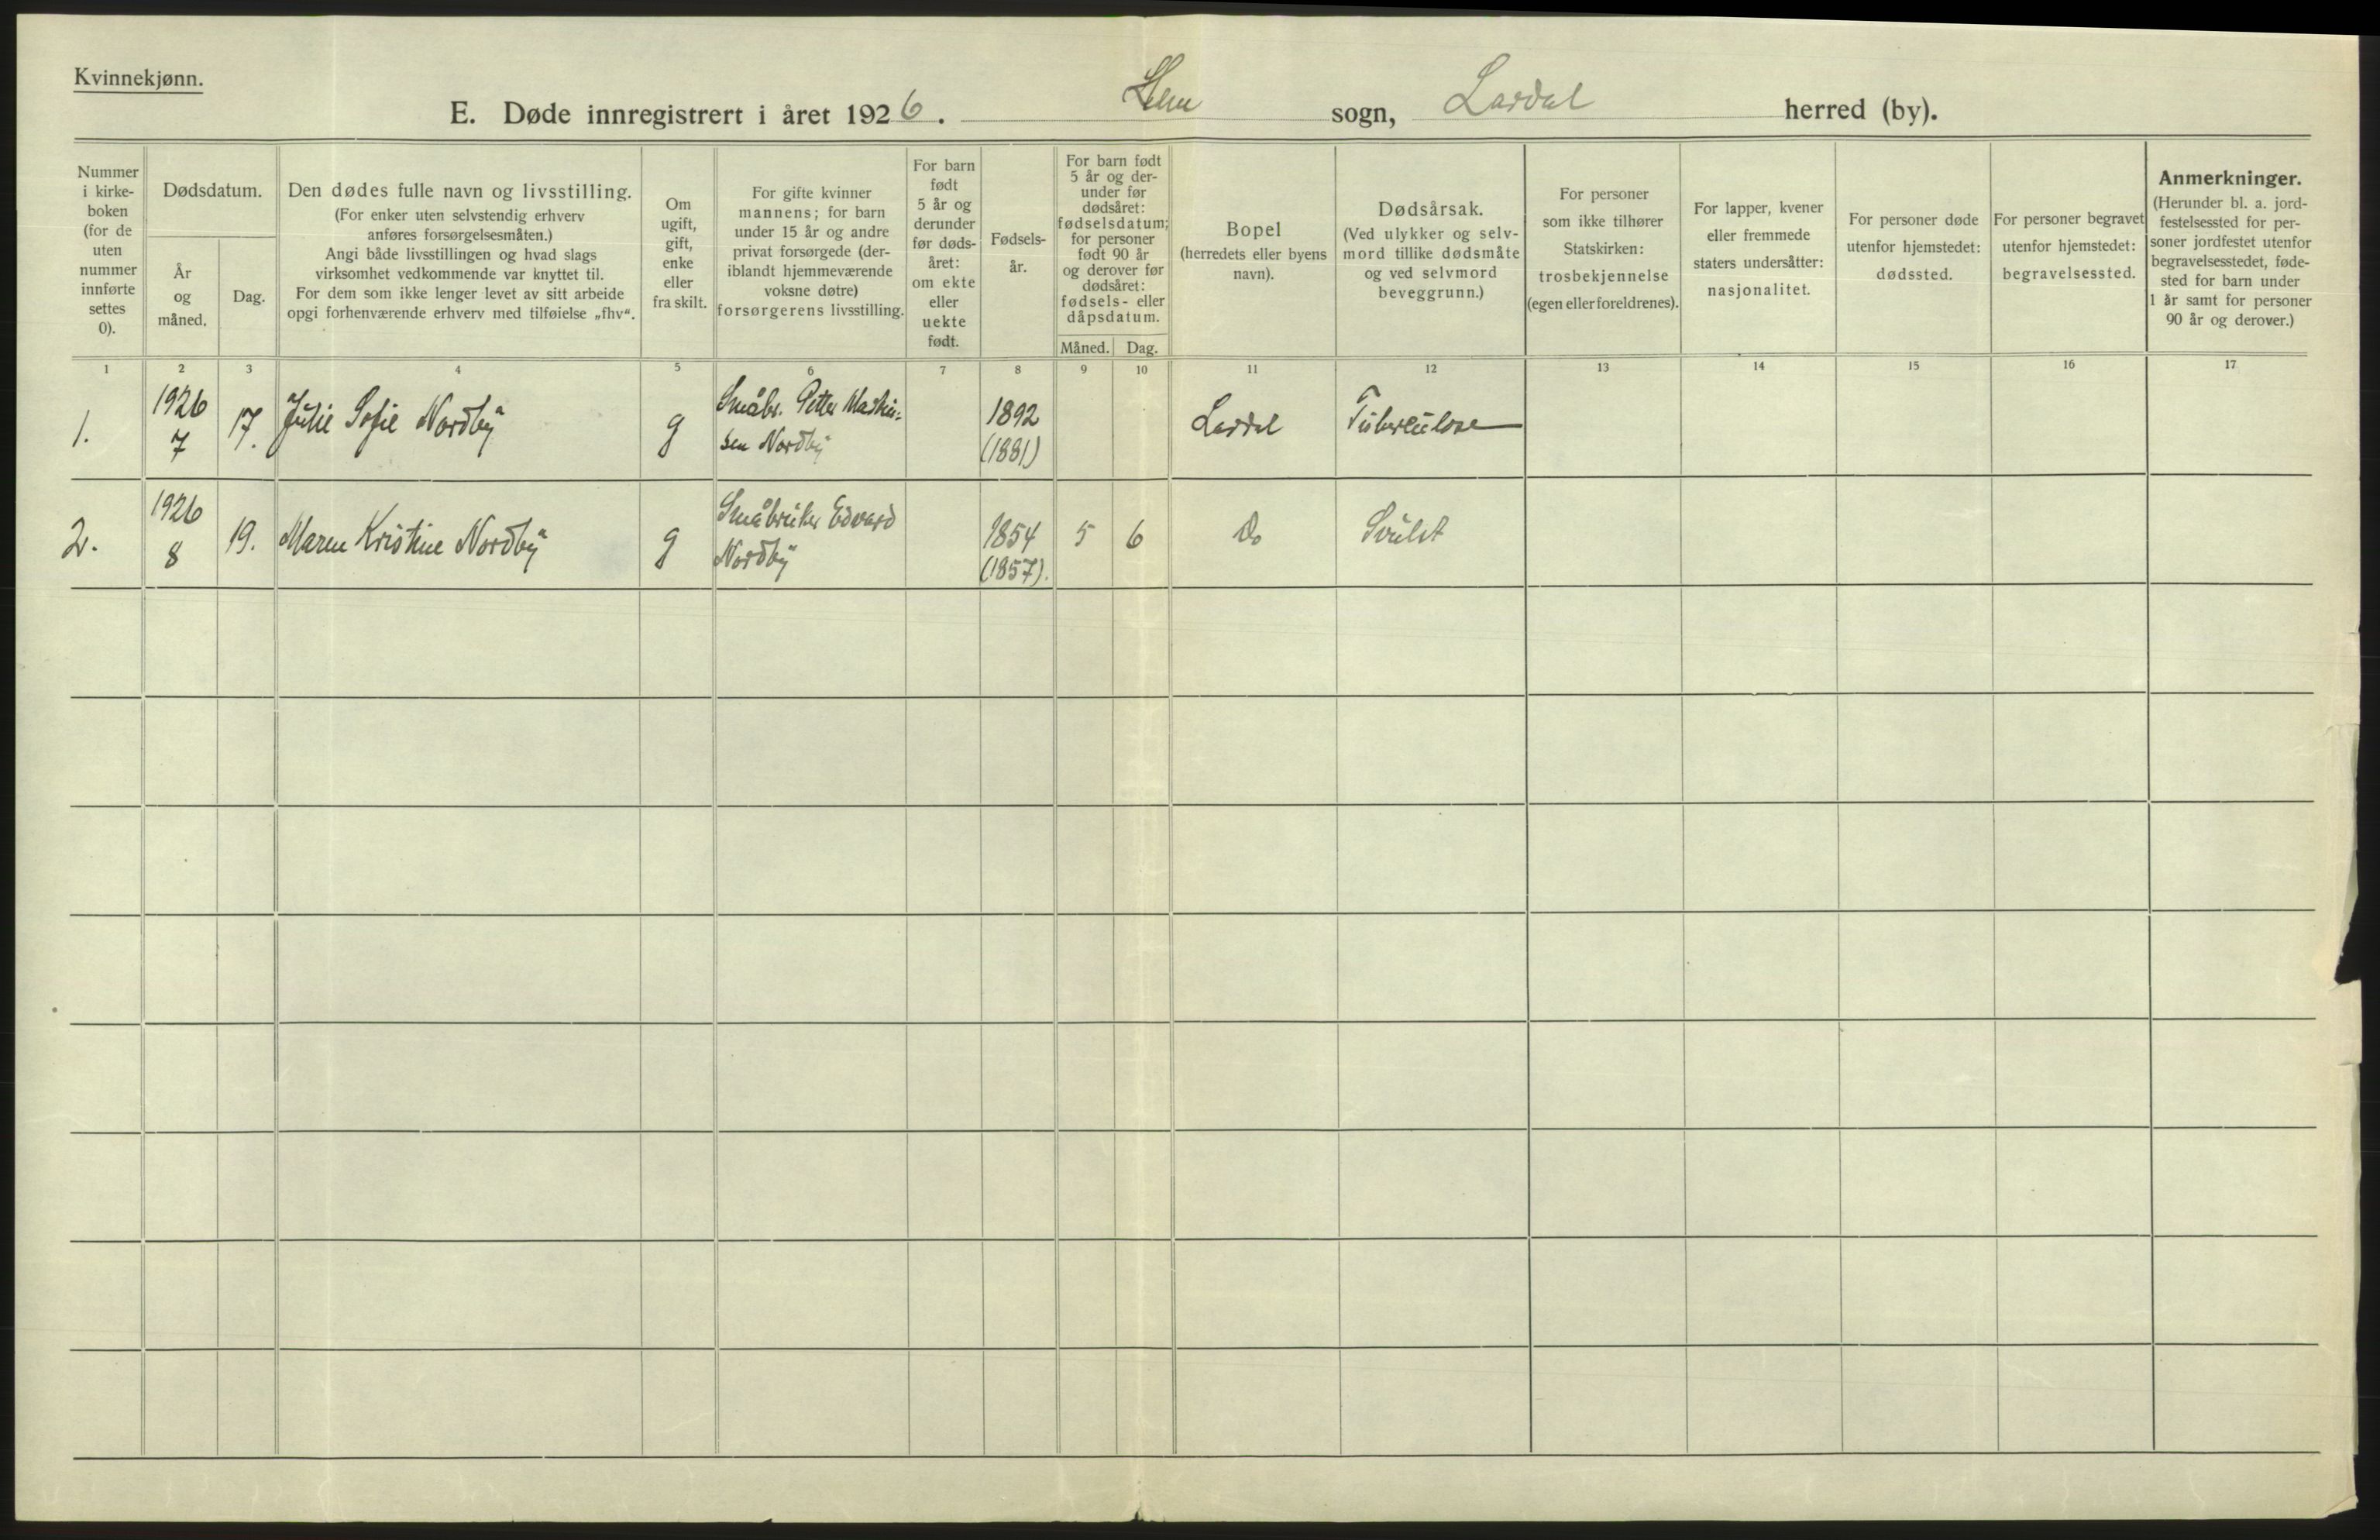 Kvinnekjønn.
E. Døde innregistrert i året 1926. Hem sogn, Lardal herred (by).
Nummer
i kirke-
boken
(for de
uten
nummer
innførte
settes
0).
Dødsdatum.
År
og
måned.
Dag.
Den dødes fulle navn og livsstilling.
(For enker uten selvstendig erhverv
anføres forsørgelsesmåten.)
Angi både livsstillingen og hvad slags
virksomhet vedkommende var knyttet til.
For dem som ikke lenger levet av sitt arbeide
opgi forhenværende erhverv med tilføielse „fhv“.
Om
ugift,
gift,
enke
eller
fraskilt.
For gifte kvinner
mannens; for barn
under 15 år og andre
privat forsørgede (der-
iblandt hjemmeværende
voksne døtre)
forsørgerens livsstilling.
For barn
født
5 år og
derunder
før døds-
året:
om ekte
eller
uekte
født.
Fødsels-
år.
For barn født
5 år og der-
under før
dødsåret:
fødselsdatum;
for personer
født 90 år
og derover før
dødsåret:
fødsels- eller
dåpsdatum.
Måned. Dag.
Bopel
(herredets eller byens
navn).
Dødsårsak.
(Ved ulykker og selv-
mord tillike dødsmåte
og ved selvmord
beveggrunn.)
For personer
som ikke tilhører
Statskirken:
trosbekjennelse
(egen eller foreldrenes).
For lapper, kvener
eller fremmede
staters undersåtter:
nasjonalitet.
For personer døde
utenfor hjemstedet:
dødssted.
For personer begravet
utenfor hjemstedet:
begravelsessted.
Anmerkninger.
(Herunder bl. a. jord-
festelsessted for per-
soner jordfestet utenfor
begravelsesstedet, føde-
sted for barn under
1 år samt for personer
90 år og derover.)
1 2 3 4 5 6 7 8 9 10 11 12 13 14 15 16 17
1. 1926
7 17. Julie Sofie Nordby g Småbr. Petter Mathi-
sen Nordby 1892
(1881) Lardal Tuberculose
2. 1926
8 19. Maren Kristine Nordby g Småbruker Edvard
Nordby 1854
(1857). 5 6 Do Svulst